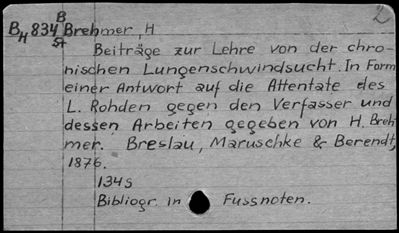 2
B
BH 834 Brehmer, H
St
Beiträge zur Lehre von der chro-
nischen Lungenschwindsucht. In Form
einer Antwort auf die Attentate des
L. Rohden gegen den Verfasser und
dessen Arbeiten gegeben von H. Breh-
mer. Breslau, Maruschke & Berendt,
1876.
134s
Bibliogr. in Fussnoten.